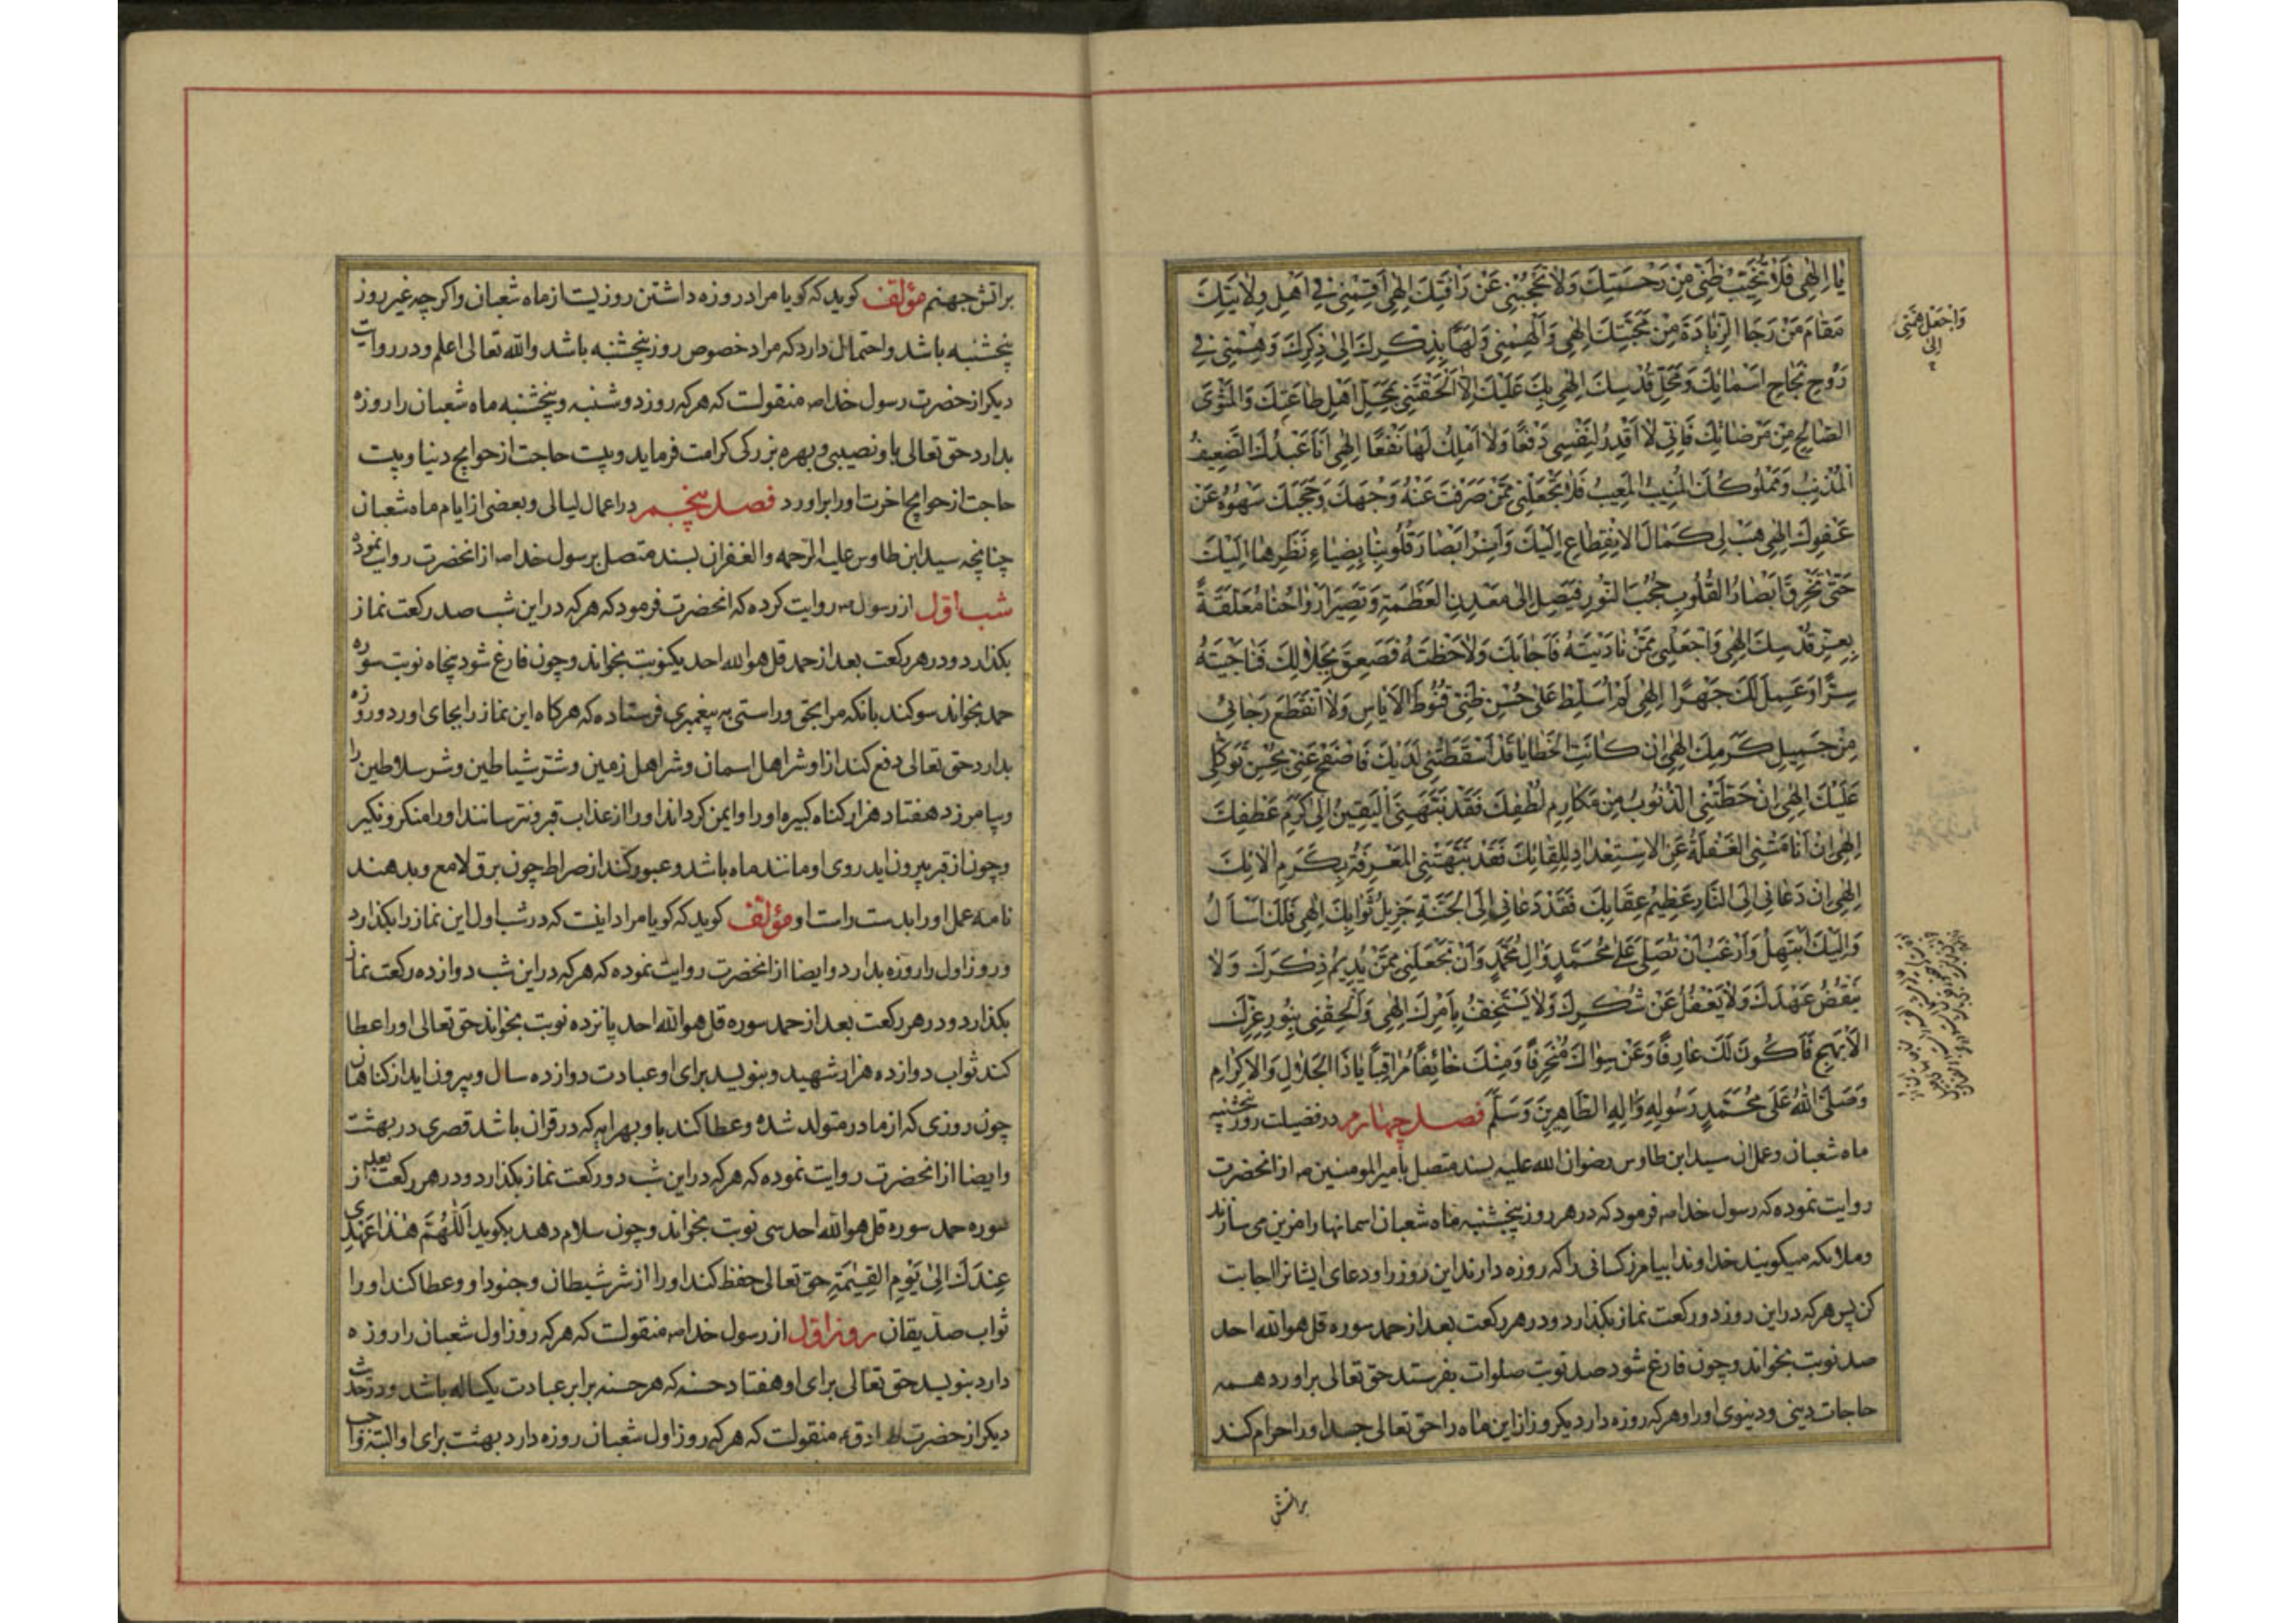 یا اِلٰهی فَلا تُخَیِّبْ ظَنّی مِنْ رَحْمَتِكَ وَلا تَحْجُبْنی عَنْ رَافَتِكَ اِلٰهی اَقِمْنی فی اَهْلِ وِلایَتِكَ
مَقامَ مَنْ رَجَا الزِّیادَةَ مِنْ مَحَبَّتِكَ اِلٰهی وَاَلْهِمْنی وَلَهاً بِذِكْرِكَ اِلیٰ ذِكْرِكَ وَهِمَّتی فی
رَوْحِ نَجاحِ اَسْمائِكَ وَمَحَلِّ قُدْسِكَ اِلٰهی بِكَ عَلَیْكَ اِلاّ اَلْحَقْتَنی بِمَحَلِّ اَهْلِ طاعَتِكَ وَالْمَثْوَی
الصّالِحِ مِنْ مَرْضاتِكَ فَاِنّی لا اَقْدِرُ لِنَفْسی دَفْعاً وَلا اَمْلِكُ لَها نَفْعاً اِلٰهی اَنَا عَبْدُكَ الضَّعیفُ
الْمُذْنِبُ وَمَمْلُوكُكَ الْمُنیبُ الْمَعیبُ فَلا تَجْعَلْنی مِمَّنْ صَرَفْتَ عَنْهُ وَجْهَكَ وَحَجَبَكَ سَهْوُهُ عَنْ
عَفْوِكَ اِلٰهی هَبْ لی كَمالَ الاِنْقِطاعِ اِلَیْكَ وَاَنِرْ اَبْصارَ قُلُوبِنا بِضِیاءِ نَظَرِها اِلَیْكَ
حَتّیٰ تَخْرِقَ اَبْصارُ الْقُلُوبِ حُجُبَ النُّورِ فَتَصِلَ اِلیٰ مَعْدِنِ الْعَظَمَةِ وَتَصیرَ اَرْواحُنا مُعَلَّقَةً
بِعِزِّ قُدْسِكَ اِلٰهی وَاجْعَلْنی مِمَّنْ نادَیْتَهُ فَاَجابَكَ وَلاحَظْتَهُ فَصَعِقَ بِجَلالِكَ فَناجَیْتَهُ
سِرّاً وَعَمِلَ لَكَ جَهْراً اِلٰهی لَمْ اُسَلِّطْ عَلیٰ حُسْنِ ظَنّی قُنُوطَ الاَیاسِ وَلا انْقَطَعَ رَجائی
مِنْ جَمیلِ كَرَمِكَ اِلٰهی اِنْ كانَتِ الْخَطایا قَدْ اَسْقَطَتْنی لَدَیْكَ فَاصْفَحْ عَنّی بِحُسْنِ تَوَكُّلی
عَلَیْكَ اِلٰهی اِنْ حَطَّتْنِی الذُّنُوبُ مِنْ مَكارِمِ لُطْفِكَ فَقَدْ نَبَّهَنِی الْیَقینُ اِلیٰ كَرَمِ عَطْفِكَ
اِلٰهی اِنْ اَنامَتْنِی الْغَفْلَةُ عَنِ الاِسْتِعْدادِ لِلِقائِكَ فَقَدْ نَبَّهَتْنِی الْمَعْرِفَةُ بِكَرَمِ الائِكَ
اِلٰهی اِنْ دَعانی اِلَی النّارِ عَظیمُ عِقابِكَ فَقَدْ دَعانی اِلَی الْجَنَّةِ جَزیلُ ثَوابِكَ اِلٰهی فَلَكَ اَسْاَلُ
وَاِلَیْكَ اَبْتَهِلُ وَاَرْغَبُ اَنْ تُصَلِّیَ عَلیٰ مُحَمَّدٍ وَالِ مُحَمَّدٍ وَاَنْ تَجْعَلَنی مِمَّنْ یُدیمُ ذِكْرَكَ وَلا
یَنْقُضُ عَهْدَكَ وَلا یَغْفُلُ عَنْ شُكْرِكَ وَلا یَسْتَخِفُّ بِاَمْرِكَ اِلٰهی وَاَلْحِقْنی بِنُورِ عِزِّكَ
الاَبْهَجِ فَاَكُونَ لَكَ عارِفاً وَعَنْ سِواكَ مُنْحَرِفاً وَمِنْكَ خائِفاً مُراقِباً یا ذَا الْجَلالِ وَالاِكْرامِ
وَصَلَّی اللهُ عَلیٰ مُحَمَّدٍ رَسُولِهِ وَالِهِ الطّاهِرینَ وَسَلَّمَ فصل چهارم در فضیلت روز پنجشنبه
ماه شعبان و عمل ان سید ابن طاوس رضوان الله علیه بسند متصل بامیر المومنین ع از انحضرت
روایت نموده که رسول خدا ص فرمود که در هر روز پنجشنبه ماه شعبان اسمانها را مزین می سازند
و ملائکه میکویند خداوندا بیامرز کسانی را که روزه دارند این روز را و دعای ایشانرا اجابت
کن پس هر که در این روز دو رکعت نماز بکذارد و در هر رکعت بعد از حمد سوره قل هو الله احد
صد نوبت بخواند و چون فارغ شود صد نوبت صلوات بفرستد حق تعالی براورد همه
حاجات دینی و دنیوی او را و هر که روزه دارد یکروز از این ماه را حق تعالی جسد او را حرام کند
براتش
وَاجْعَلْ هِمَّتی
الیٰ
براتش جهنم مؤلف کوید که کویا مراد روزه داشتن روزیست از ماه شعبان و اکر چه غیر روز
پنجشنبه باشد و احتمال دارد که مراد خصوص روز پنجشنبه باشد والله تعالی اعلم و در روایت
دیکر از حضرت رسول خدا ص منقولست که هر که روز دوشنبه و پنجشنبه ماه شعبان را روزه
بدارد حق تعالی باو نصیبی و بهره بزرکی کرامت فرماید و بیست حاجت از حوایج دنیا و بیست
حاجت از حوایج اخرت او را براورد فصل پنجم در اعمال لیالی و بعضی از ایام ماه شعبان
چنانچه سید ابن طاوس علیه الرحمه والغفران بسند متصل برسول خدا ص از انحضرت روایت نموده
شب اول از رسول ص روایت کرده که انحضرت فرمود که هر که در این شب صد رکعت نماز
بکذارد و در هر رکعت بعد از حمد قل هو الله احد یکنوبت بخواند و چون فارغ شود پنجاه نوبت سوره
حمد بخواند سوکند بانکه مرا بحق و راستی به پیغمبری فرستاده که هر کاه این نماز را بجای اورد و روزه
بدارد حق تعالی دفع کند از او شر اهل اسمان و شر اهل زمین و شر شیاطین و شر سلاطین را
و بیامرزد هفتاد هزار کناه کبیره او را و ایمن کرداند او را از عذاب قبر و نترسانند او را منکر و نکیر
و چون از قبر بیرون اید روی او مانند ماه باشد و عبور کند از صراط چون برق لامع و بدهند
نامه عمل او را بدست راست او مؤلف کوید که کویا مراد اینست که در شب اول این نماز را بکذارد
و روز اول را روزه بدارد و ایضا از انحضرت روایت نموده که هر که در این شب دوازده رکعت نماز
بکذارد و در هر رکعت بعد از حمد سوره قل هو الله احد پانزده نوبت بخواند حق تعالی او را عطا
کند ثواب دوازده هزار شهید و بنویسد برای او عبادت دوازده سال و بیرون اید از کناهان
چون روزی که از مادر متولد شده و عطا کند باو بهر ایه که در قران باشد قصری در بهشت
و ایضا از انحضرت روایت نموده که هر که در این شب دو رکعت نماز بکذارد و در هر رکعت بعد از
سوره حمد سوره قل هو الله احد سی نوبت بخواند و چون سلام دهد بکوید اَللّٰهُمَّ هٰذا عَهْدی
عِنْدَكَ اِلیٰ یَوْمِ الْقِیٰمَةِ حق تعالی حفظ کند او را از شر شیطان و جنود او و عطا کند او را
ثواب صدیقان روز اول از رسول خدا ص منقولست که هر که روز اول شعبان را روزه
دارد بنویسد حق تعالی برای او هفتاد حسنه که هر حسنه برابر عبادت یکساله باشد و در حدیث
دیکر از حضرت صادق ع منقولست که هر که روز اول شعبان روزه دارد بهشت برای او البته واجب